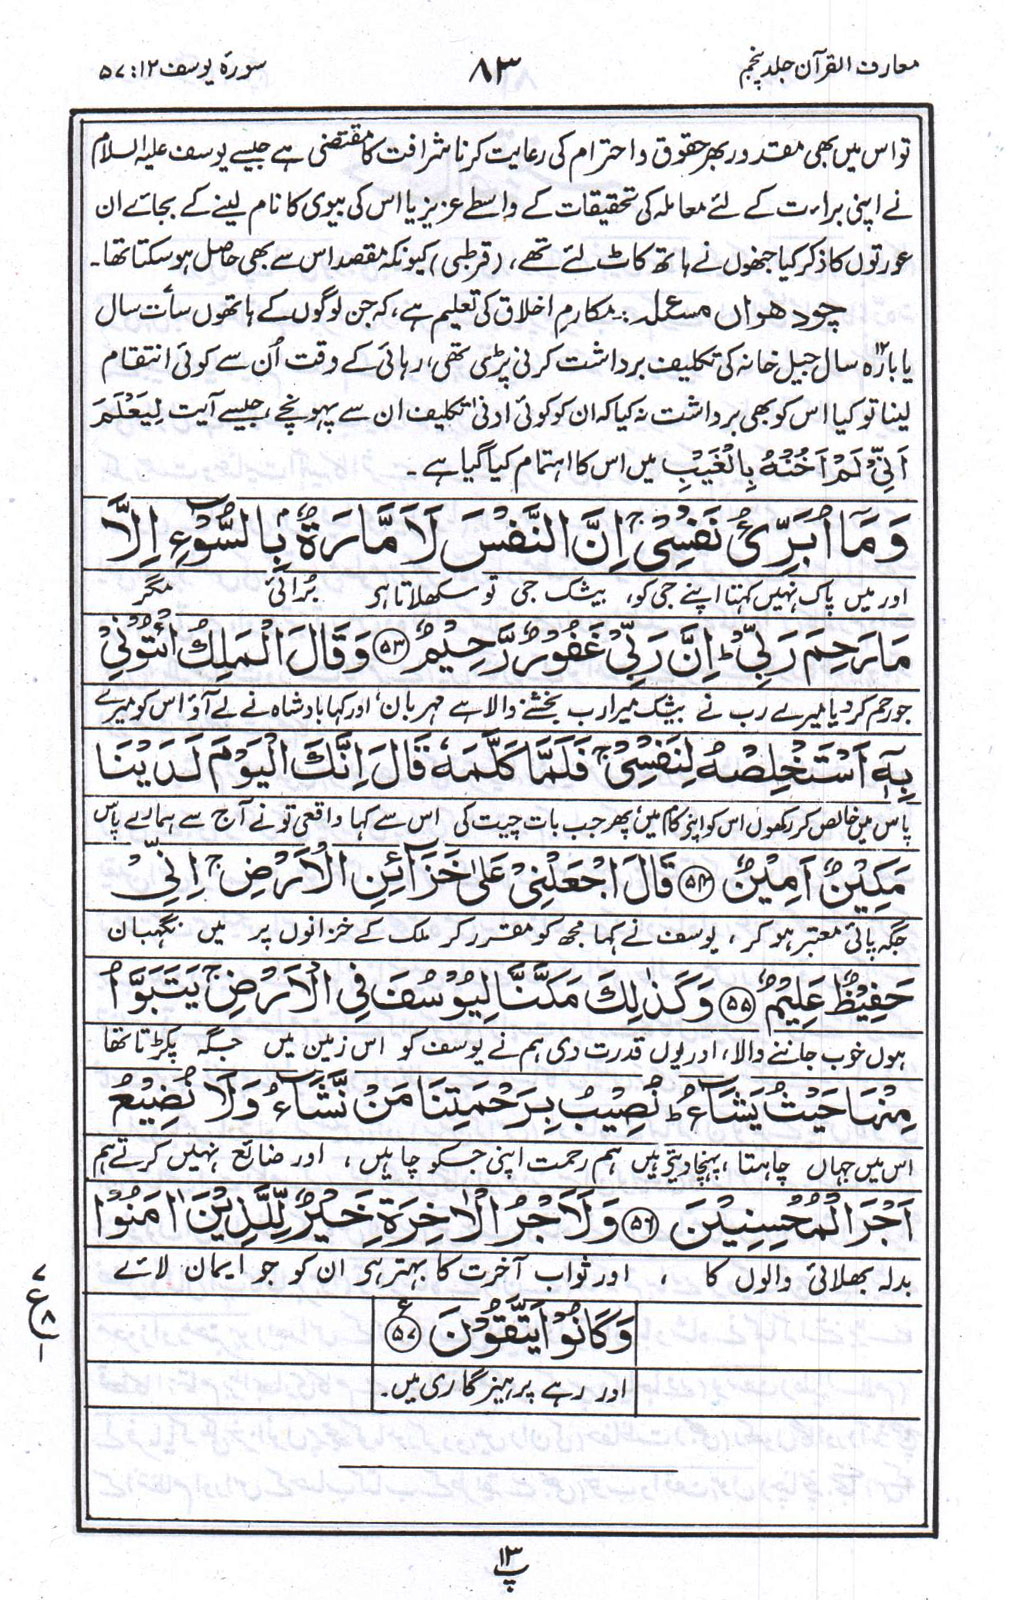 معارف القرآن جلد پنجم
۸۳
سورۂ یوسف ۱۲: ۵۷
تو اس میں بھی مقدور بھر حقوق و احترام کی رعایت کرنا شرافت کا مقتضیٰ ہے جیسے یوسف علیہ السلام
نے اپنی براءت کے لئے معاملہ کی تحقیقات کے واسطے عزیز یا اس کی بیوی کا نام لینے کے بجائے ان
عورتوں کا ذکر کیا جنھوں نے ہاتھ کاٹ لئے تھے، (قرطبی) کیونکہ مقصد اس سے بھی حاصل ہو سکتا تھا۔
چودھواں مسئلہ: مکارمِ اخلاق کی تعلیم ہے، کہ جن لوگوں کے ہاتھوں سات سال
یا بارہ ۱۲ سال جیل خانہ کی تکلیف برداشت کرنی پڑی تھی، رہائی کے وقت اُن سے کوئی انتقام
لینا تو کیا اس کو بھی برداشت نہ کیا کہ ان کو کوئی ادنیٰ تکلیف ان سے پہونچے، جیسے آیت لِیَعْلَمَ
اَنِّیْ لَمْ اَخُنْہُ بِالْغَیْبِ میں اس کا اہتمام کیا گیا ہے۔
وَمَآ اُبَرِّئُ نَفْسِیْ ۚ اِنَّ النَّفْسَ لَاَمَّارَۃٌۢ بِالسُّوْٓءِ اِلَّا
اور میں پاک نہیں کہتا اپنے جی کو، بیشک جی تو سکھلاتا ہے برائی مگر
مَا رَحِمَ رَبِّیْ ؕ اِنَّ رَبِّیْ غَفُوْرٌ رَّحِیْمٌ ﴿۵۳﴾ وَقَالَ الْمَلِکُ ائْتُوْنِیْ
جو رحم کر دیا میرے رب نے بیشک میرا رب بخشنے والا ہے مہربان، اور کہا بادشاہ نے لے آؤ اس کو میرے
بِہٖٓ اَسْتَخْلِصْہُ لِنَفْسِیْ ۚ فَلَمَّا کَلَّمَہٗ قَالَ اِنَّکَ الْیَوْمَ لَدَیْنَا
پاس میں خالص کر رکھوں اس کو اپنے کام میں، پھر جب بات چیت کی اس سے کہا واقعی تو نے آج سے ہمارے پاس
مَکِیْنٌ اَمِیْنٌ ﴿۵۴﴾ قَالَ اجْعَلْنِیْ عَلٰی خَزَآئِنِ الْاَرْضِ ۚ اِنِّیْ
جگہ پائی معتبر ہو کر، یوسف نے کہا مجھ کو مقرر کر ملک کے خزانوں پر میں نگہبان
حَفِیْظٌ عَلِیْمٌ ﴿۵۵﴾ وَکَذٰلِکَ مَکَّنَّا لِیُوْسُفَ فِی الْاَرْضِ ۚ یَتَبَوَّاُ
ہوں خوب جاننے والا، اور یوں قدرت دی ہم نے یوسف کو اس زمین میں جگہ پکڑتا تھا
مِنْہَا حَیْثُ یَشَآءُ ؕ نُصِیْبُ بِرَحْمَتِنَا مَنْ نَّشَآءُ وَلَا نُضِیْعُ
اس میں جہاں چاہتا، پہنچا دیتے ہیں ہم رحمت اپنی جس کو چاہیں، اور ضائع نہیں کرتے ہم
اَجْرَ الْمُحْسِنِیْنَ ﴿۵۶﴾ وَلَاَجْرُ الْاٰخِرَۃِ خَیْرٌ لِّلَّذِیْنَ اٰمَنُوْا
بدلہ بھلائی والوں کا، اور ثواب آخرت کا بہتر ہے ان کو جو ایمان لائے
وَکَانُوْا یَتَّقُوْنَ ﴿۵۷﴾ ع
۷
ع ۸
۱
اور رہے پرہیزگاری میں۔
۱۳